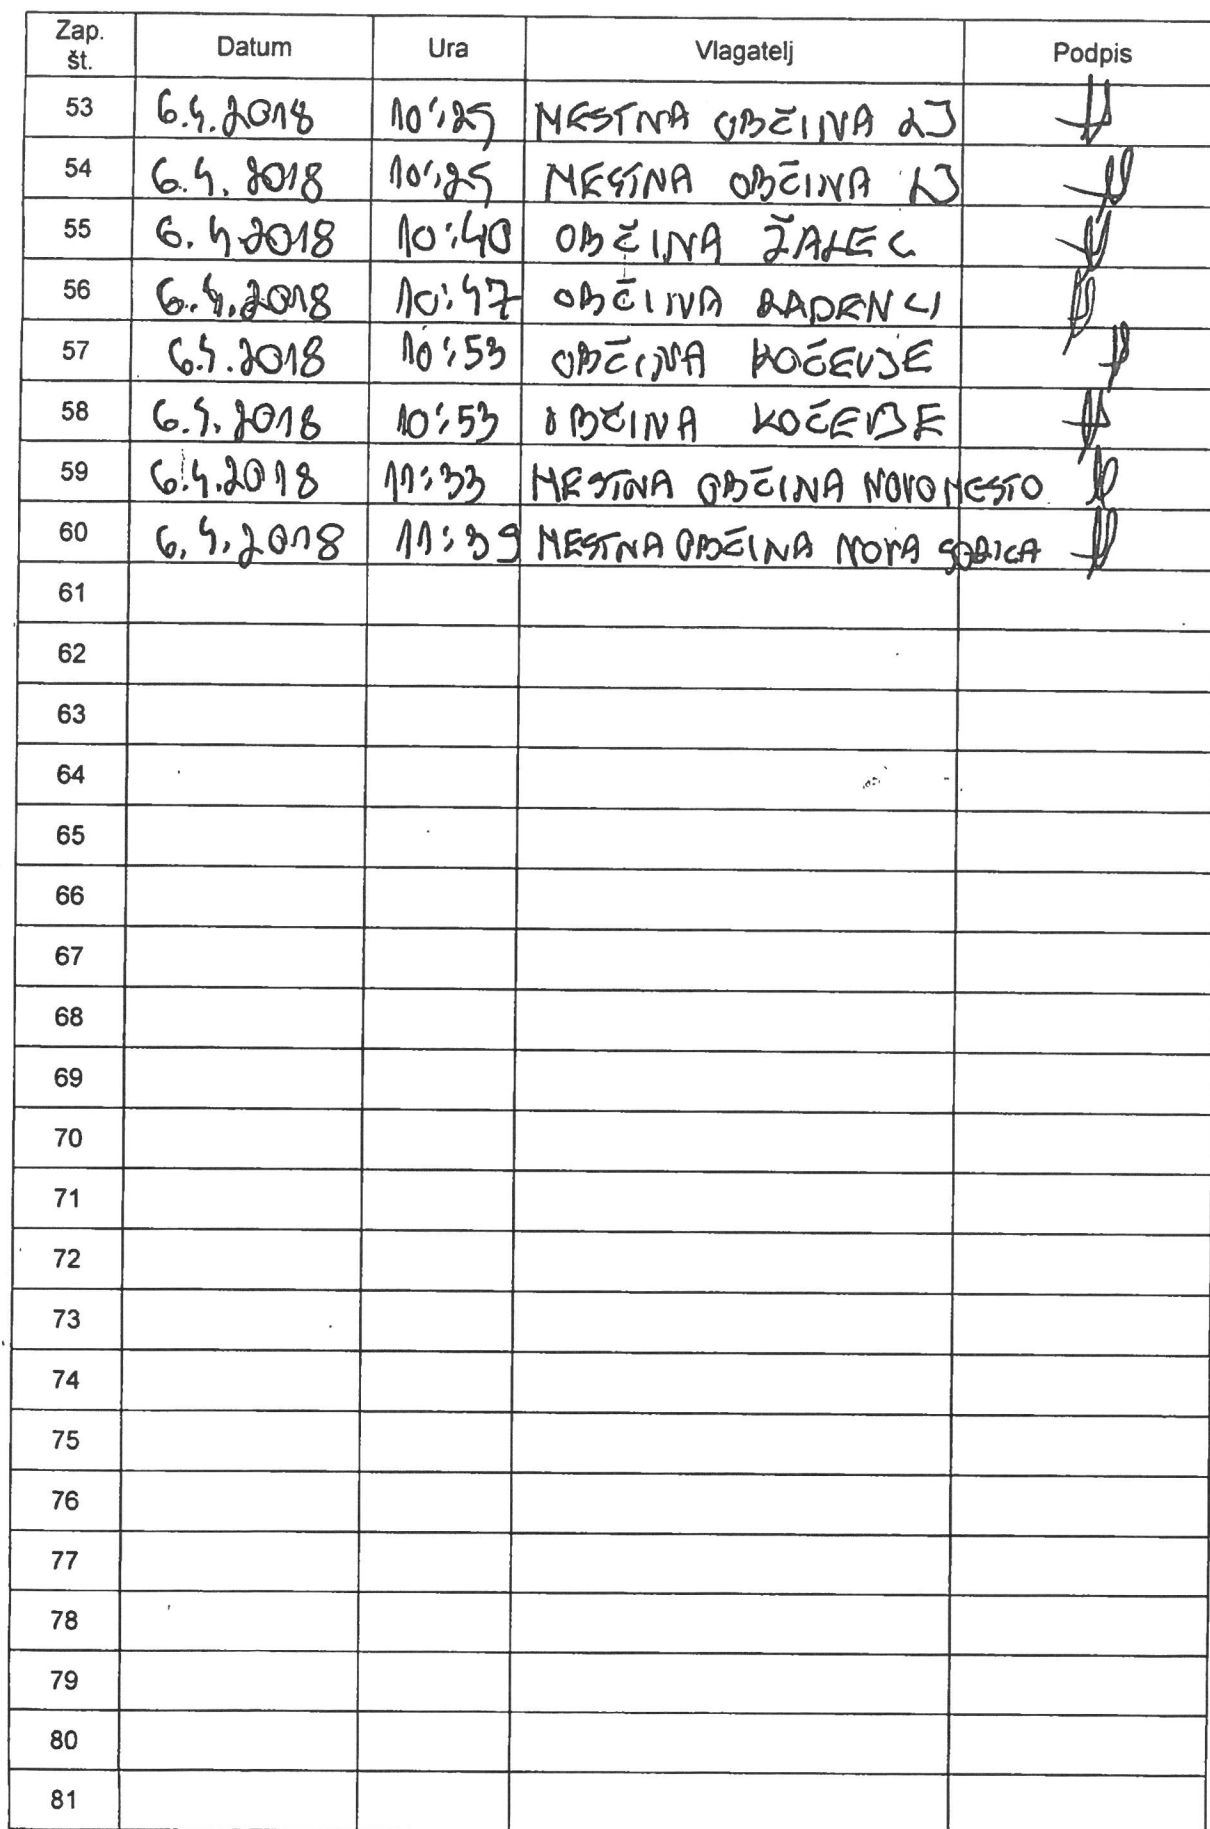 Zap. št. Datum Ura Vlagatelj Podpis
53 6.4.2018 10:25 MESTNA OBČINA LJ
54 6.4.2018 10:25 MESTNA OBČINA LJ
55 6.4.2018 10:40 OBČINA ŽALEC
56 6.4.2018 10:47 OBČINA RADENCI
57 6.4.2018 10:53 OBČINA KOČEVJE
58 6.4.2018 10:53 OBČINA KOČEVJE
59 6.4.2018 11:33 MESTNA OBČINA NOVO MESTO
60 6.4.2018 11:39 MESTNA OBČINA NOVA GORICA
61
62
63
64
65
66
67
68
69
70
71
72
73
74
75
76
77
78
79
80
81